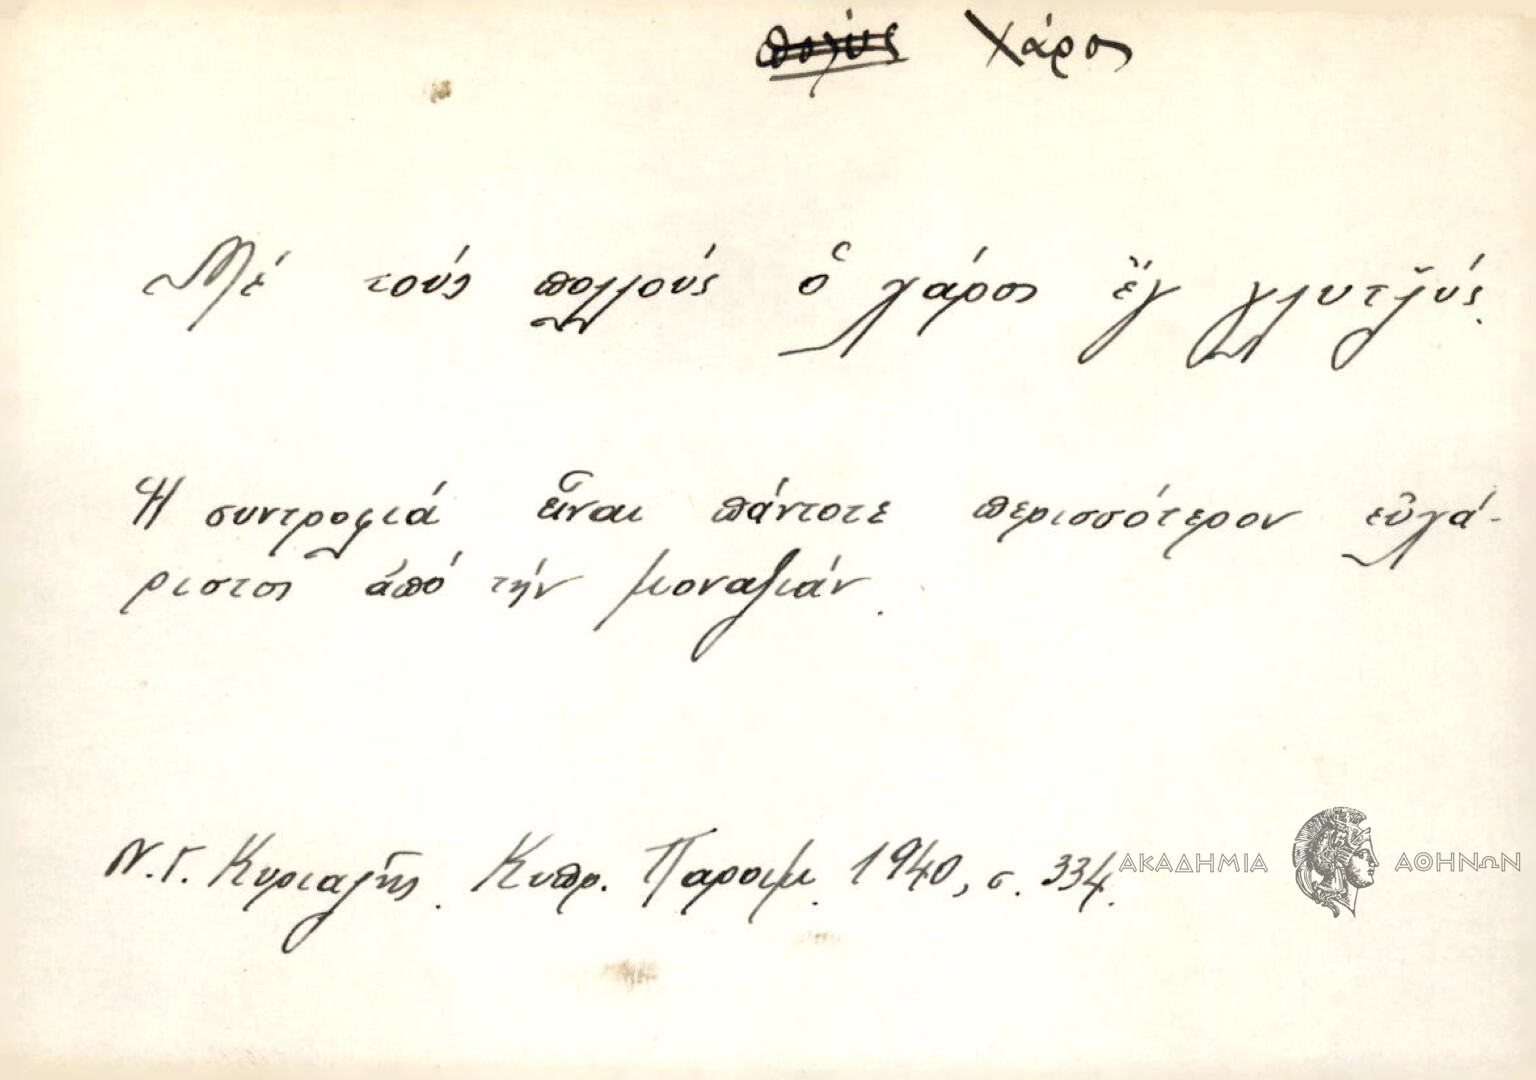 πολύς Χάρος
Μέ τούς πολλούς ὁ χάρος ἔγ γλυτζ̌ύς.
Ἡ συντροφιά εἶναι πάντοτε περισσότερον εὐχά-
ριστος ἀπό τήν μοναξιάν.
Ν. Γ. Κυριαζῆς. Κυπρ. Παροιμ. 1940, σ. 334.
ΑΚΑΔΗΜΙΑ ΑΘΗΝΩΝ